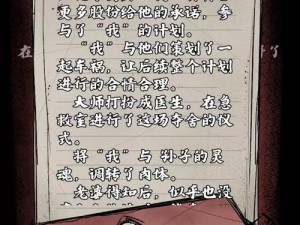 更多股份给他的承诺，参
与了“我”的计划。
“我”与他们策划了一
起车祸，让后续整个计划
进行的合情合理。
大师打扮成医生，在急
救室进行了这场夺舍的仪
式。
将“我”与孙子的灵
魂，调转了肉体。
老濤得知后，似乎也没